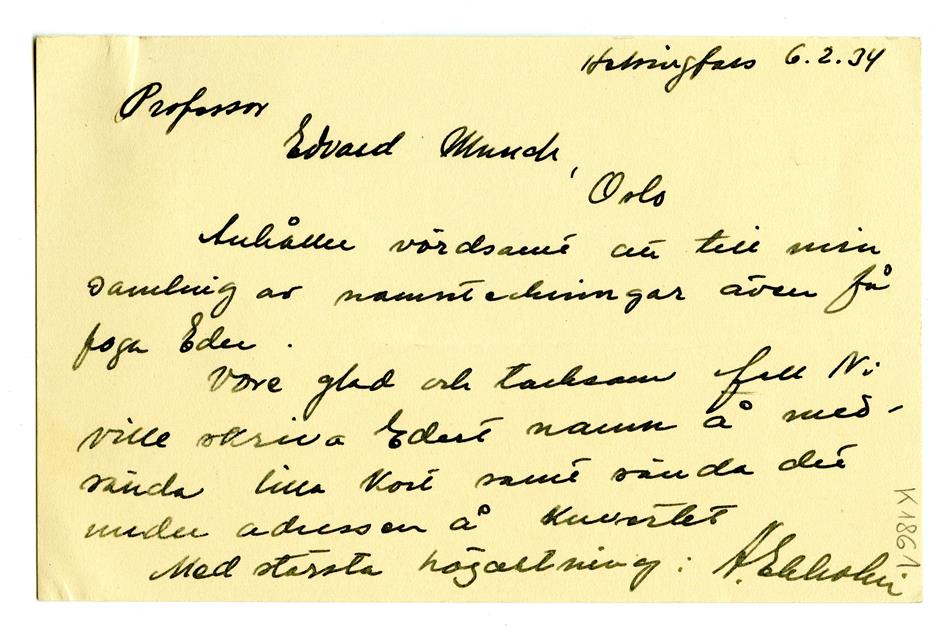 Helsingfors 6.2.34
Professor
Edvard Munch,
Oslo
Anhåller vördsamt att till min
samling av namnteckningar även få
foga Eder.
Vore glad och tacksam fall Ni
ville skriva Edert namn å med-
sända lilla kort samt sända det
under adressen å kuvertet
Med största högaktning: A. Ekholm
K1861